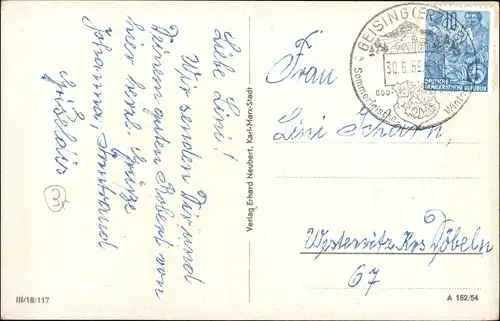 Liebe Lini!
Wir senden Dir und
Deinem guten Robert von
hier herzl. Grüße
Johanna, Irmtraud
Griseldis
Verlag Erhard Neubert, Karl-Marx-Stadt
III/18/117
GEISING
30.6.56
600-
Sommerfrische
10
DEUTSCHE
DEMOKRATISCHE REPUBLIK
Frau
Lini Scharn,
Westewitz Krs Döbeln
67
A 162/54